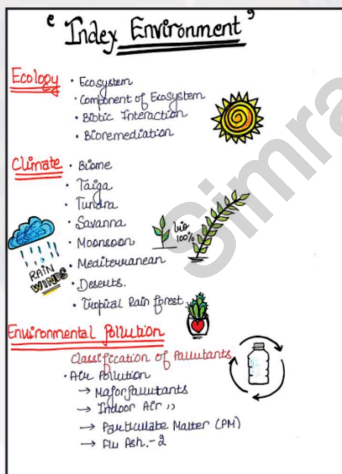 “ Index Environment ”
Ecology • Ecosystem
• Component of Ecosystem
• Biotic Interaction
• Bioremediation
Climate • Biome
• Taiga
• Tundra
• Savanna
• Moonsoon
• Mediterranean
• Deserts.
• Tropical Rain forest
bio
100%
RAIN
WINDS
Environmental Pollution
Classification of Pollutants
• Air Pollution
→ Major Pollutants
→ Indoor Air ,,
→ Particulate Matter (PM)
→ Flu Ash.-2
Simra